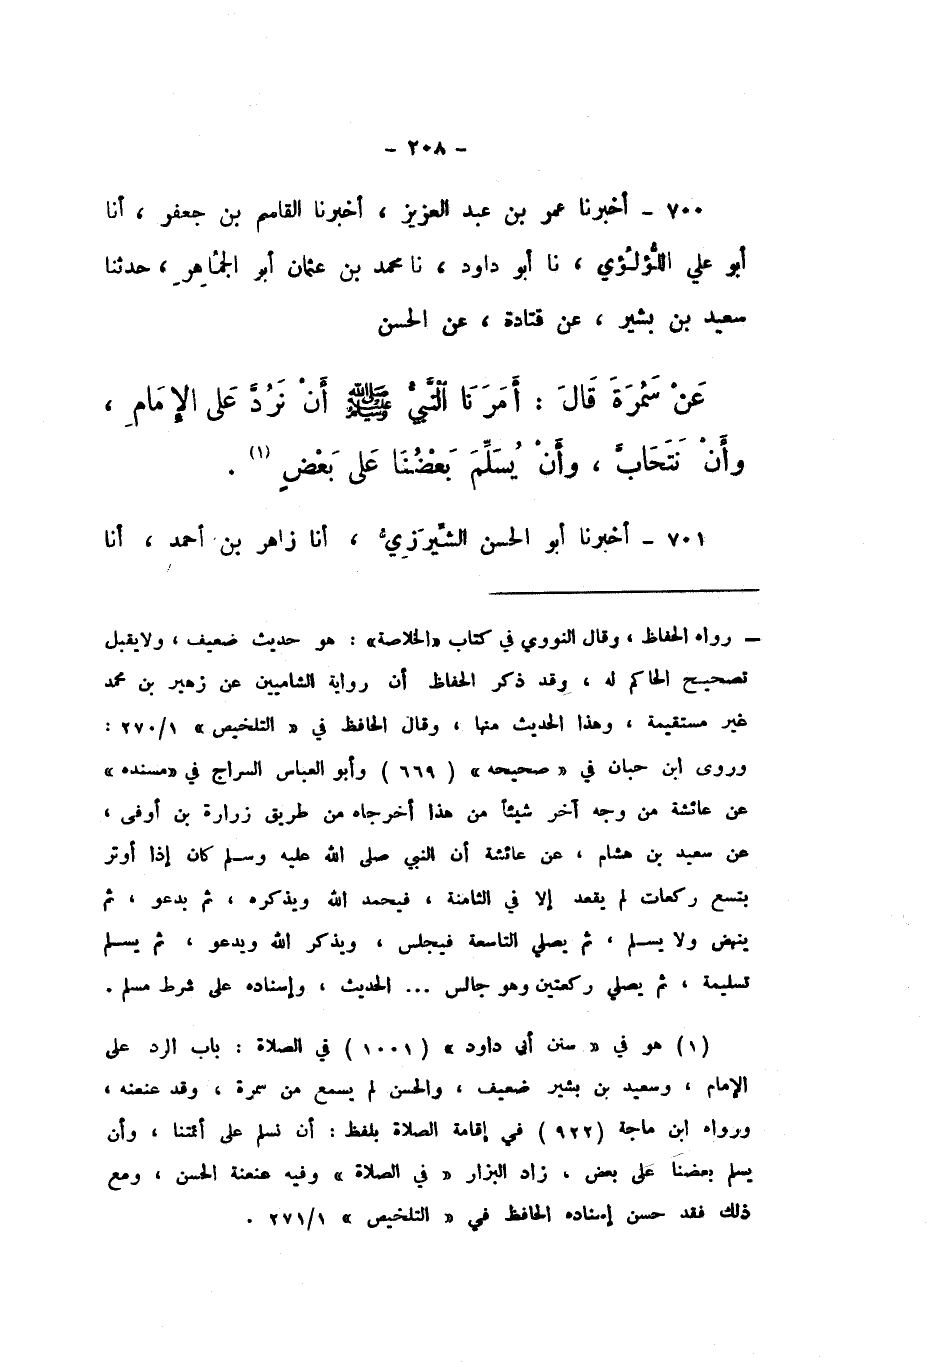 - ٢٠٨ -
٧٠٠ - أخبرنا عمر بن عبد العزيز ، أخبرنا القاسم بن جعفر ، أنا
أبو علي اللُّؤلُؤي ، نا أبو داود ، نا محمد بن عثمان أبو الجُمَاهِرِ ، حدثنا
سعيد بن بشير ، عن قتادة ، عن الحسن
عَنْ سَمُرَةَ قَالَ : أَمَرَنَا النَّبِيُّ ﷺ أَنْ نَرُدَّ عَلى الإِمَامِ ،
وأَنْ نَتَحَابَّ ، وأَنْ يُسَلِّمَ بَعْضُنَا عَلى بَعْضٍ (١) .
٧٠١ - أخبرنا أبو الحسن الشِّيرَزِيُّ ، أنا زاهر بن أحمد ، أنا
ــ رواه الحفاظ ، وقال النووي في كتاب «الخلاصة» : هو حديث ضعيف ، ولايقبل
تصحيح الحاكم له ، وقد ذكر الحفاظ أن رواية الشاميين عن زهير بن محمد
غير مستقيمة ، وهذا الحديث منها ، وقال الحافظ في « التلخيص » ٢٧٠/١ :
وروى ابن حبان في « صحيحه » ( ٦٦٩ ) وأبو العباس السراج في «مسنده»
عن عائشة من وجه آخر شيئاً من هذا أخرجاه من طريق زرارة بن أوفى ،
عن سعيد بن هشام ، عن عائشة أن النبي صلى الله عليه وسلم كان إذا أوتر
بتسع ركعات لم يقعد إلا في الثامنة ، فيحمد الله ويذكره ، ثم يدعو ، ثم
ينهض ولا يسلم ، ثم يصلي التاسعة فيجلس ، ويذكر الله ويدعو ، ثم يسلم
تسليمة ، ثم يصلي ركعتين وهو جالس ... الحديث ، وإسناده على شرط مسلم .
(١) هو في « سنن أبي داود » ( ١٠٠١ ) في الصلاة : باب الرد على
الإمام ، وسعيد بن بشير ضعيف ، والحسن لم يسمع من سمرة ، وقد عنعنه ،
ورواه ابن ماجة (٩٢٢ ) في إقامة الصلاة بلفظ : أن نسلم على أئمتنا ، وأن
يسلم بعضنا على بعض . زاد البزار « في الصلاة » وفيه عنعنة الحسن ، ومع
ذلك فقد حسن إسناده الحافظ في « التلخيص » ٢٧١/١ .